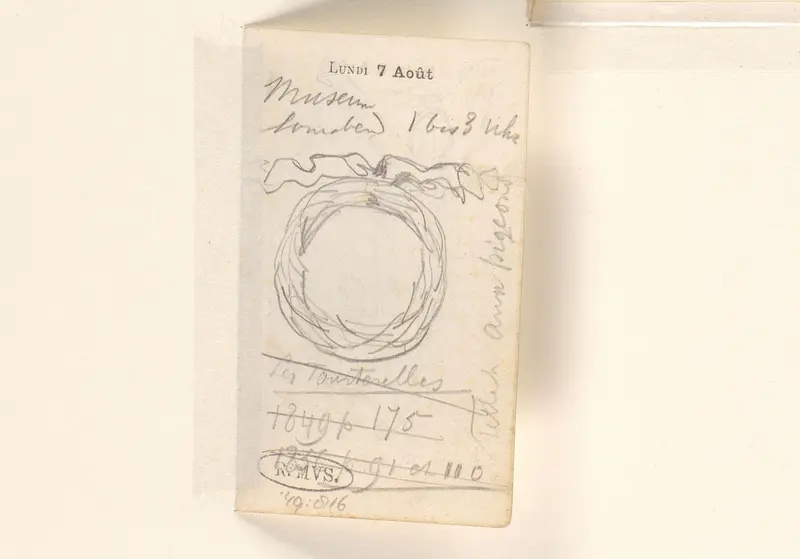 LUNDI 7 Août
Museum
1 bis 3 Uhr
aux pigeons
Les Tourterelles
1849 p 175
p 91 et 110
R. MVS.
'49:816